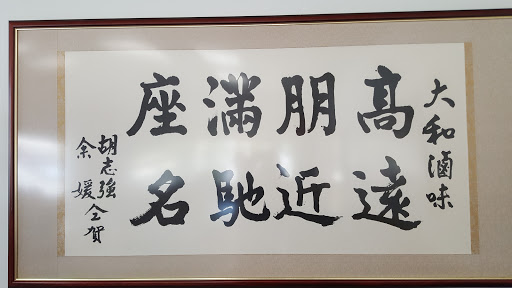 大和滷味
高朋滿座
遠近馳名
胡志強
余媛仝賀